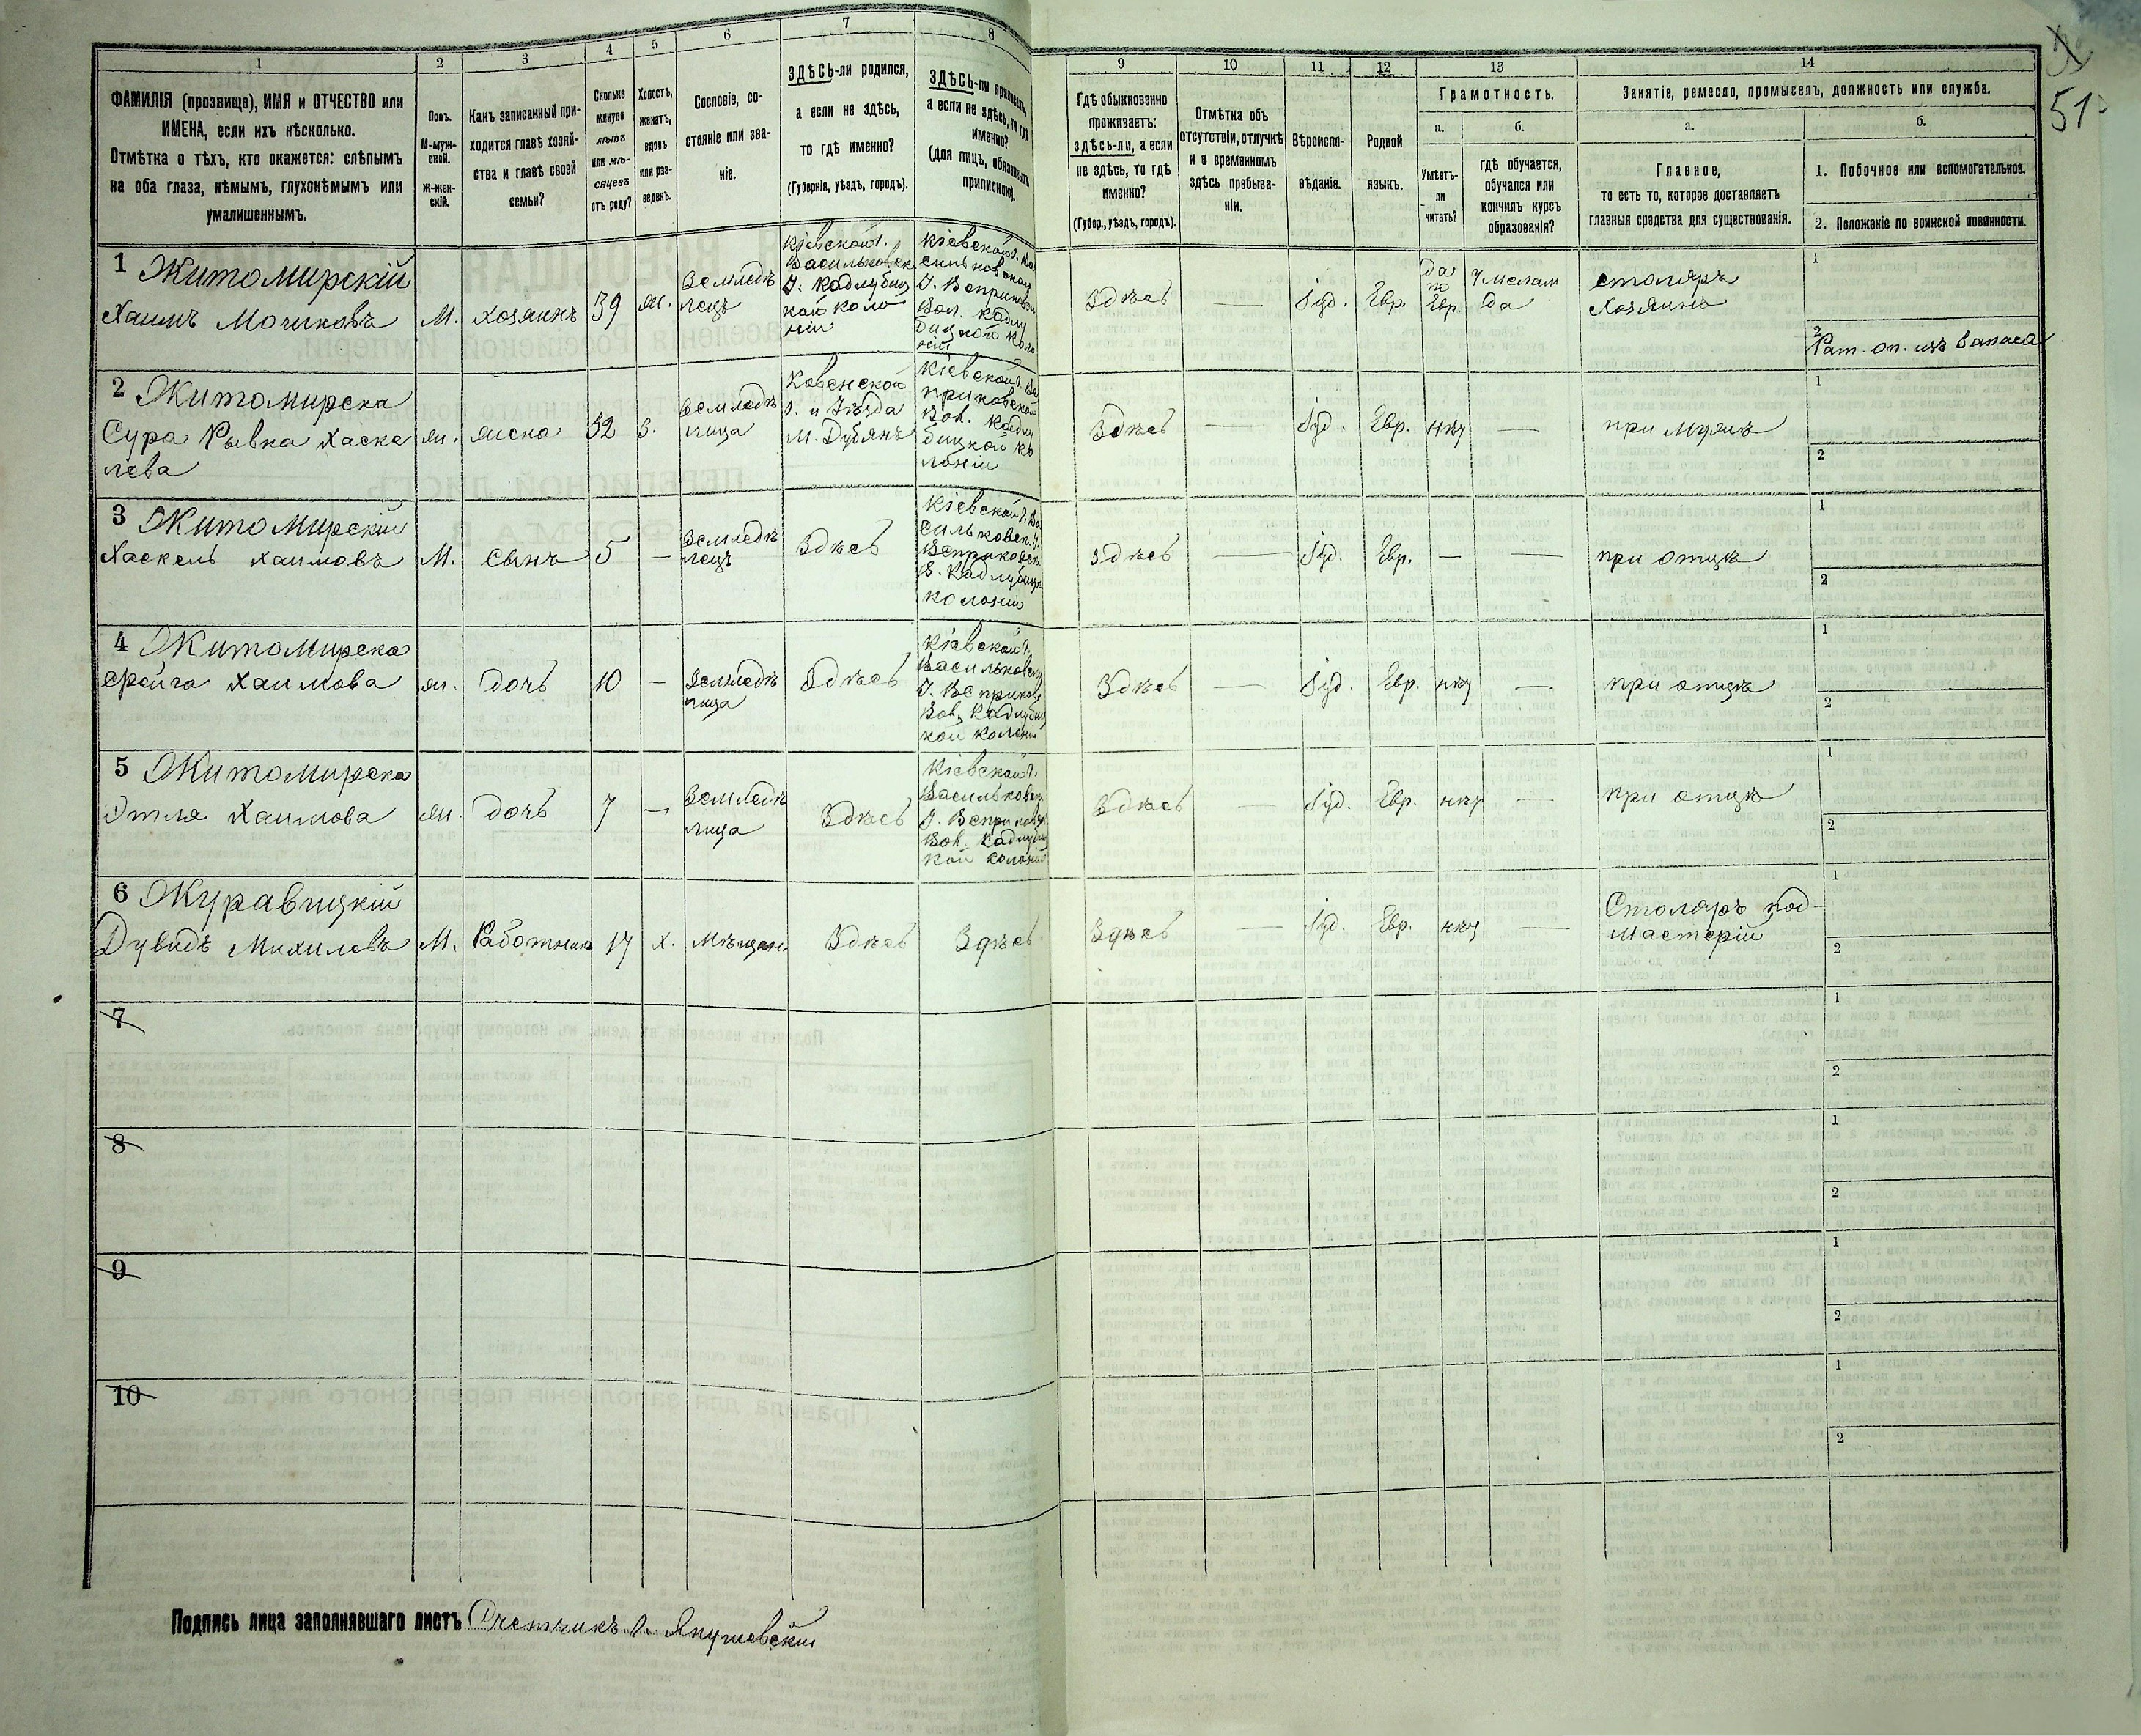 1
2
3
4
5
6
7
8
9
10
11
12
13
14
51
ФАМИЛІЯ (прозвище), ИМЯ и ОТЧЕСТВО или
ИМЕНА, если ихъ нѣсколько.
Отмѣтка о тѣхъ, кто окажется: слѣпымъ
на оба глаза, нѣмымъ, глухонѣмымъ или
умалишеннымъ.
Полъ.
М-муж-
ской.
Ж-жен-
скій.
Какъ записанный при-
ходится главѣ хозяй-
ства и главѣ своей
семьи?
Сколько
минуло
лѣтъ
или мѣ-
сяцевъ
отъ роду?
Холостъ,
женатъ,
вдовъ
или раз-
веденъ.
Сословіе, со-
стояніе или зва-
ніе.
ЗДѢСЬ-ли родился,
а если не здѣсь,
то гдѣ именно?
(Губернія, уѣздъ, городъ).
ЗДѢСЬ-ли приписанъ,
а если не здѣсь, то гдѣ
именно?
(для лицъ, обязанныхъ
припискою).
Гдѣ обыкновенно
проживаетъ:
здѣсь-ли, а если
не здѣсь, то гдѣ
именно?
(Губер., уѣздъ, городъ).
Отмѣтка объ
отсутствіи, отлучкѣ
и о временномъ
здѣсь пребыва-
ніи.
Вѣроиспо-
вѣданіе.
Родной
языкъ.
Грамотность.
а.
б.
Умѣетъ-
ли
читать?
гдѣ обучается,
обучался или
кончилъ курсъ
образованія?
Занятіе, ремесло, промыселъ, должность или служба.
а.
б.
Главное,
то есть то, которое доставляетъ
главныя средства для существованія.
1. Побочное или вспомогательное.
2. Положеніе по воинской повинности.
1 Житомирскій
Хаимъ Мошковъ
М.
хозяинъ
39
ж.
Землед­ѣ
лецъ
Кіевской г.
Васильковск.
У. Кадлубиц
кой коло
ніи
Кіевской г. Ва
сильковскаго
У. Веприковск
Вол. Кадлу
бицкой коло
ніи
Здѣсь
—
Іуд.
Евр.
да
по
Евр.
У мелам
да
столяръ
Хозяинъ
1
2
Рат. оп. изъ запаса
2 Житомирска
Сура Рывка Хаске
лева
ж.
жена
32
З.
Земледѣ
лица
Ковенской
г. и Уѣзда
м. Дубянъ
Кіевской г. Ве
приковской
Вол. Кадлу
бицкой ко
лоніи
Здѣсь
—
Іуд.
Евр.
нѣт
—
при мужѣ
1
2
3 Житомирскій
Хаскель Хаимовъ
М.
сынъ
5
—
Земледѣ
лецъ
Здѣсь
Кіевской г. Ва
сильковск. У.
Веприковск.
В. Кадлубицк
колоніи
здѣсь
—
Іуд.
Евр.
—
—
при отцѣ
1
2
4 Житомирска
Фрейга Хаимова
ж.
дочь
10
—
Земледѣ
лица
Здѣсь
Кіевской г.
Васильковск
У. Веприков
Вол. Кадлубиц
кой колоніи
Здѣсь
—
Іуд.
Евр.
нѣт
—
при отцѣ
1
2
5 Житомирска
Этля Хаимова
ж.
дочь
7
—
Земледѣ
лица
Здѣсь
Кіевской г.
Васильковск.
У. Веприков
Вол. Кадлубиц
кой колоніи
Здѣсь
—
Іуд.
Евр.
нѣт
—
при отцѣ
1
2
6 Журавицкій
Дувидъ Михилевъ
М.
Работникъ
17
х.
Мѣщан.
Здѣсь
Здѣсь
Здѣсь
—
Іуд.
Евр.
нѣт
—
Столяръ под-
мастерій
1
2
7
1
2
8
1
2
9
1
2
10
1
2
Подпись лица заполнявшаго листъ Счетчикъ